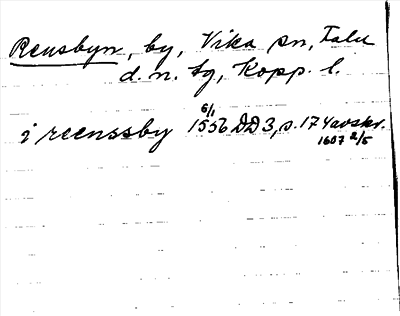 Rensbyn, by, Vika sn, Falu
d. n. tg, Kopp. l.
i reenssby 1556 6/1 DD 3, s. 174 avskr.
1607 2/5